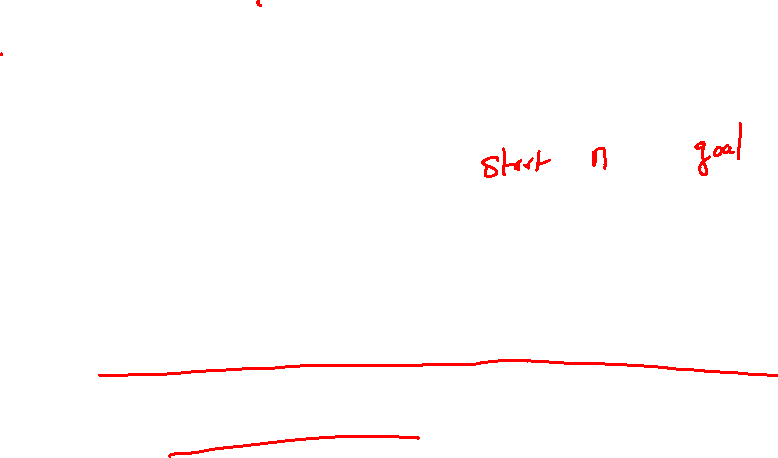 start n goal